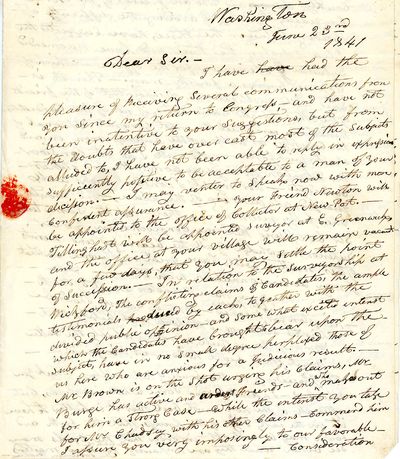 Washington
June 23rd
1841
Dear Sir. —
I have have had the
pleasure of Receiving Several communications from
you Since my return to Congress, — and have not
been inatentive to your Suggestions, but from
the doubts that have over cast most of the Subjects
alluded to, I have not been able to reply in expression
Sufficently positive to be acceptable to a man of your
decision. — I may venter to Speak now with more
Confident assurance. — your Friend Newton will
be appointed to the office of Collector at New Port —
Tillinghast will be appointed Surveyor at E. Greenwich,
and the office at your village will remain vacant
for a few days, that you may Settle the point
of Succession. — In relation to the Surveyorship at
Wickford, The conflicting claims of Candidates the ample
testimonials by each, to geather with the
divided public opinion — and Some what excited interest
which the Candidates have brought to bear upon the
Subject, have in no Small degree perplexed those of
us here who are anxious for a Judicious result. —
Mr Brown is on the Spot urging his Claims, Mr
Burge has active and ardent Friends — and The make out
for him a Strong Case — While the interest you take
for Mr with his other Claims — Commend him
I assure you very imposingly to our favorable —
Consideration